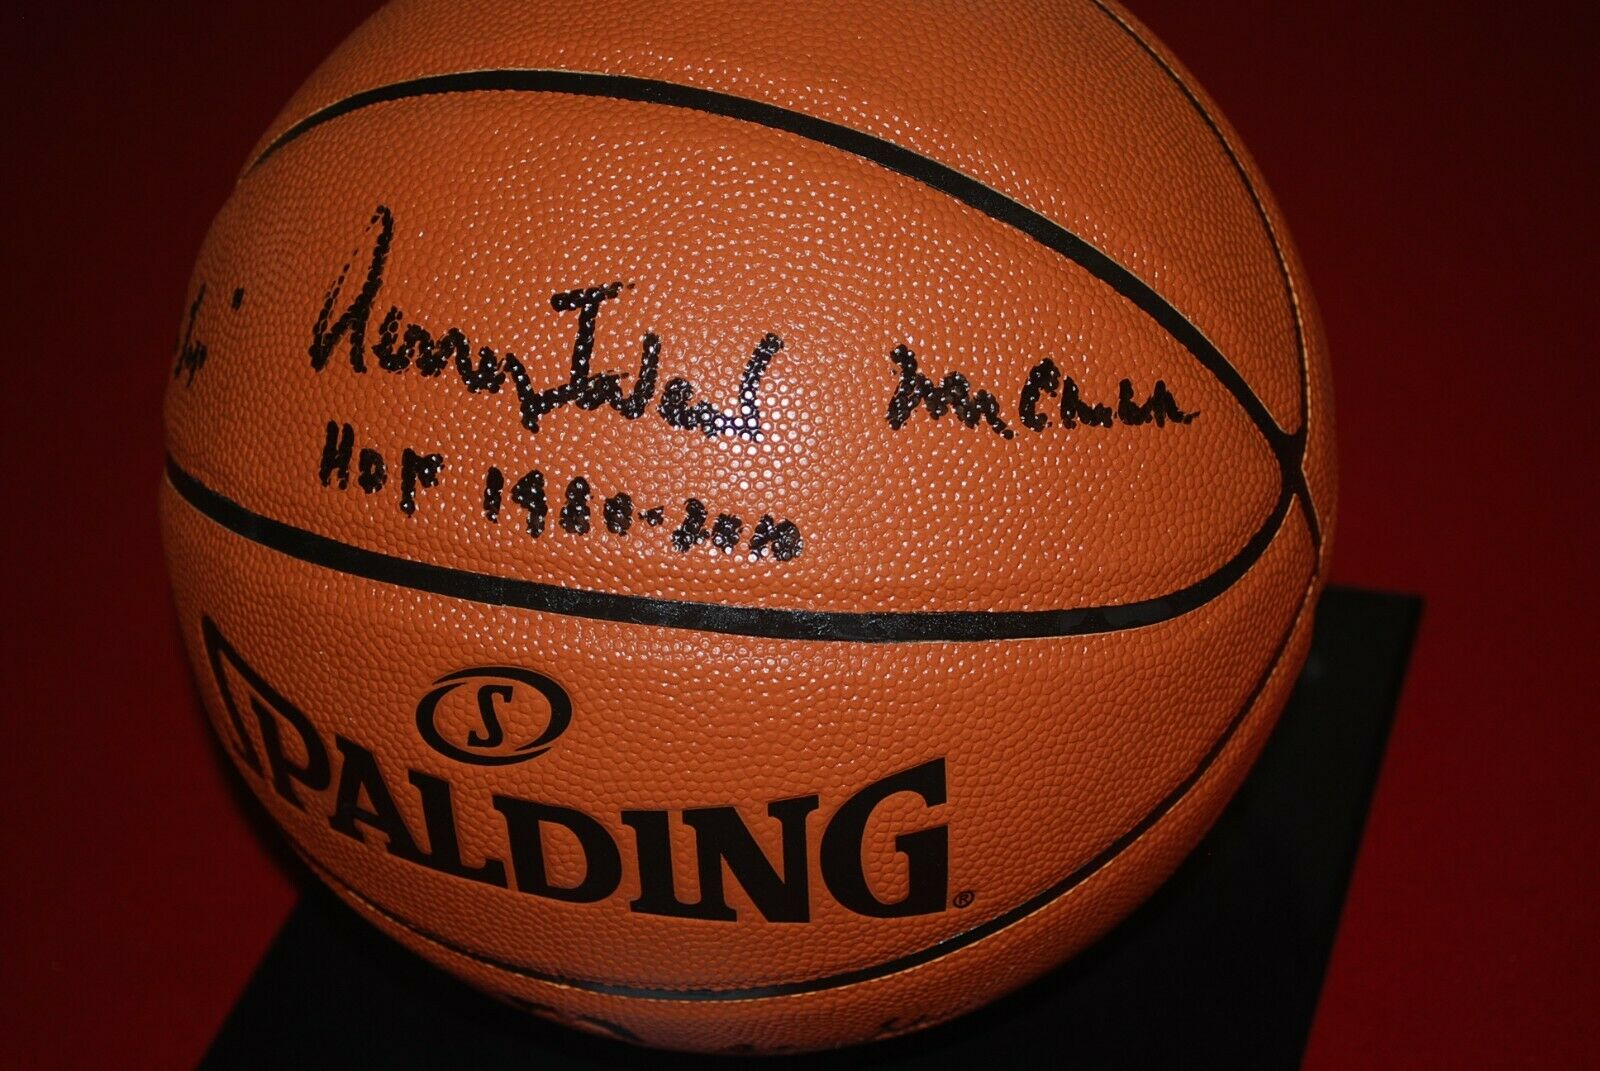 Jerry West Mr. Clutch
HOF 1980-2010
S
SPALDING®